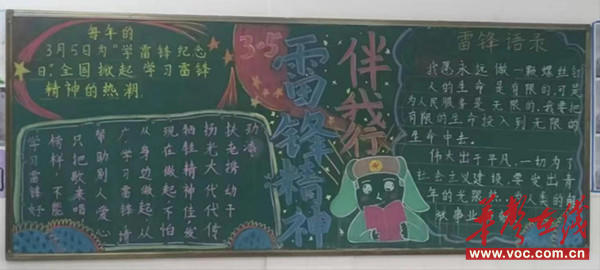 每年的
3月5日为"学雷锋纪念
日".全国掀起 学习雷锋
精神的热潮.
3·5
雷锋精神
伴我行
学习雷锋好
榜样,不能
只把歌来唱
帮助别人爱心
广学习雷锋情
从身边做起从
现在做起不怕
牺牲精神佳发
扬光大代代传
扶老携幼于
劲浩
雷锋语录
我愿永远做一颗螺丝钉
人的生命是有限的.可是
为人民服务是无限的,我要把
有限的生命投入到无限的
生命中去.
伟大出于平凡,一切为了
社会主义建设,要发出青
年的无限热 人类的解
放事业
华声在线
www.voc.com.cn